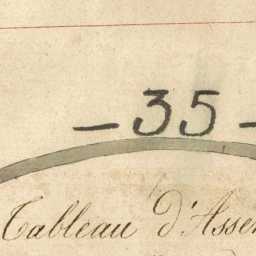 - 35 -
Tableau d'Assem